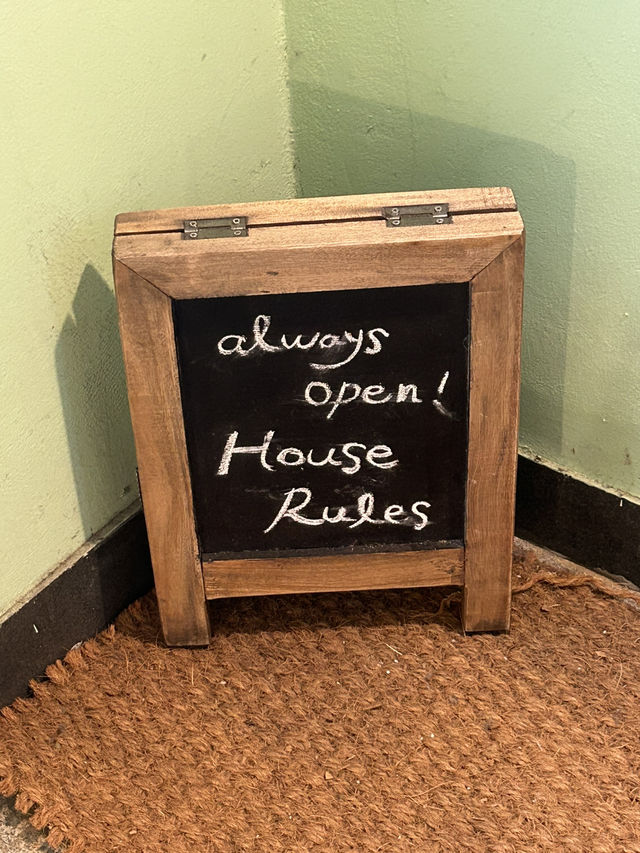 always
open!
House
Rules